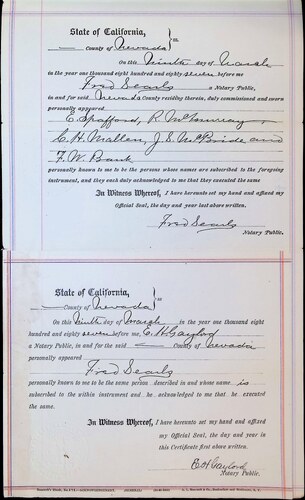 State of California,
County of Nevada } ss.
On this ninth day of March
in the year one thousand eight hundred and eighty seven before me
Fred Searls a Notary Public,
in and for said Nevada County residing therein, duly commissioned and sworn
personally appeared
C. Spafford, R. McMurray,
C. H. Mallen, J. S. McBride and
F. W. Bank
personally known to me to be the persons whose names are subscribed to the foregoing
instrument, and they each duly acknowledged to me that they executed the same
In Witness Whereof, I have hereunto set my hand and affixed my
Official Seal, the day and year last above written.
Fred Searls
Notary Public.
State of California,
County of Nevada } ss
On this ninth day of March in the year one thousand eight
hundred and eighty seven before me, E. H. Gaylord
a Notary Public, in and for the said County of Nevada
personally appeared
Fred Searls
personally known to me to be the same person described in and whose name is
subscribed to the within instrument and he acknowledged to me that he executed
the same.
In Witness Whereof, I have hereunto set my hand and affixed
my Official Seal, the day and year in
this Certificate first above written.
E. H. Gaylord
Notary Public.